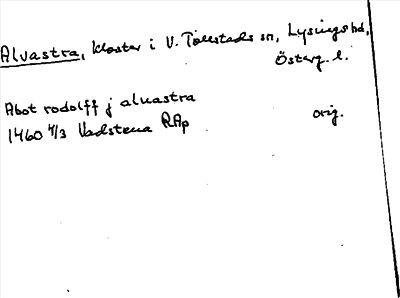 Alvastra, kloster i V. Tollstads sn, Lysings hd,
Österg. l.
Abot rodolff j aluastra
1460 4/3 Vadstena RAp orig.